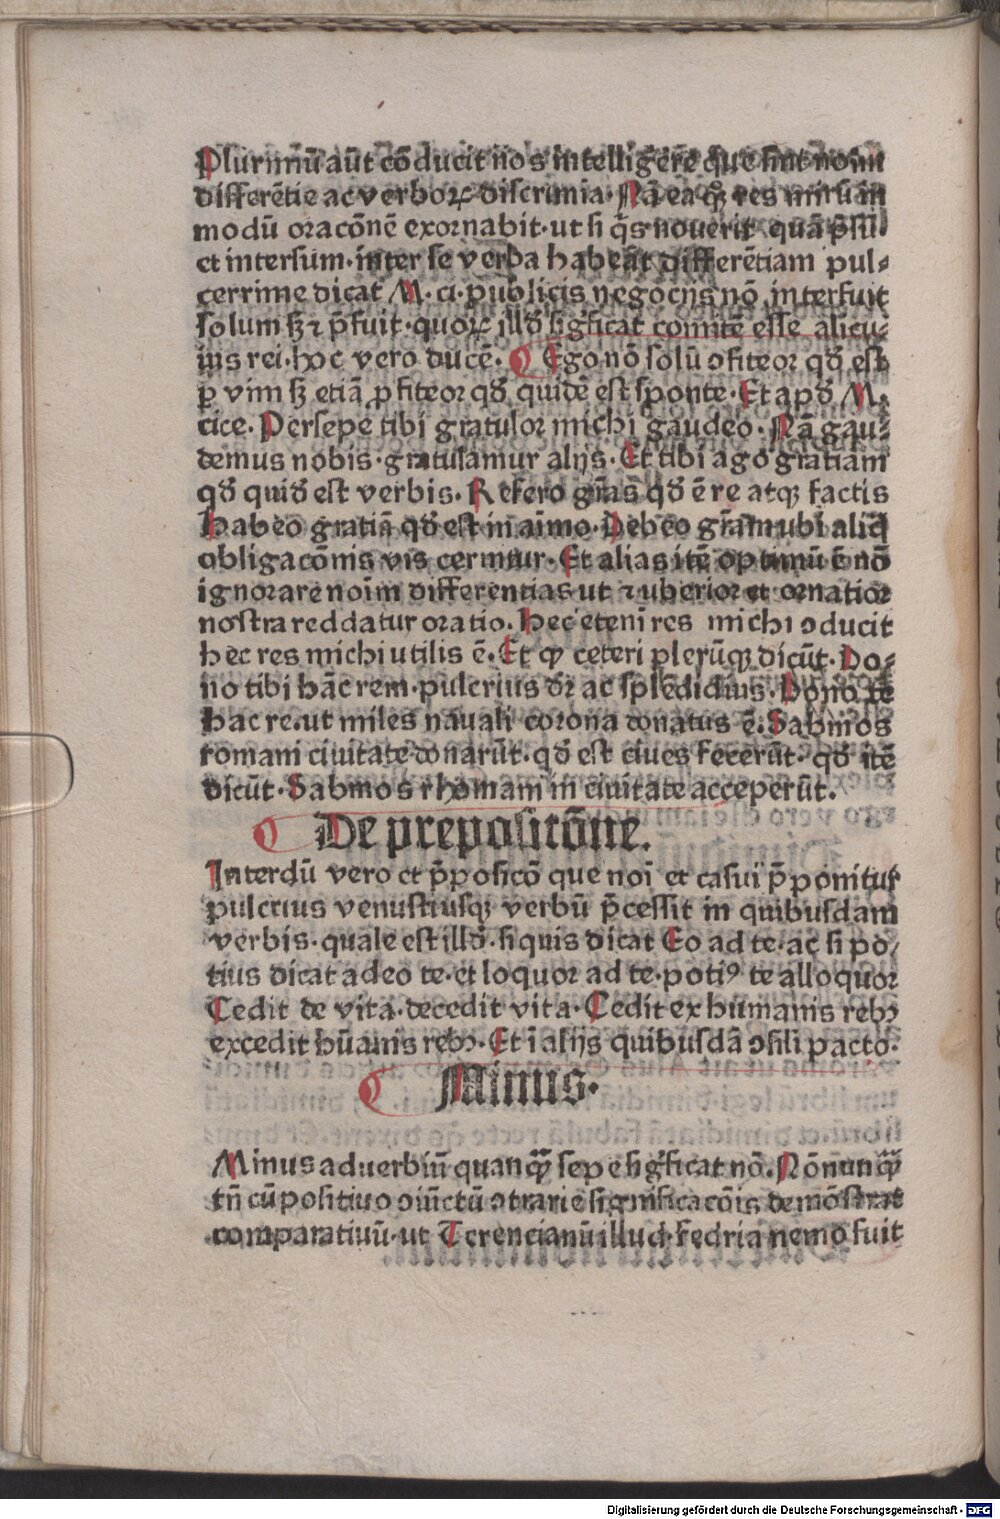 Plurimū aūt cōducit nos intelligere que sint noim
differētie ac verboꝝ discrimia· Nā ea qʒ res mirum in
modū oracōnē exornabit·ut si q̄s nouerit quā p̄sū
et intersum·inter se verba habeāt differētiam pul⸗
cerrime dicat M·ci·publicis negocijs nō interfuit
solum sꝫ ⁊ p̄fuit·quoꝝ illd̄ siḡficat comitē esse alicu⸗
ius rei·hoc vero ducē· Ego nō solū ꝯfiteor qd̄ est
ꝑ vim sꝫ etiā ꝓfiteor qd̄ quidē est sponte·Et apd̄ M·
cice·Persepe tibi gratulor michi gaudeo·Nā gau⸗
demus nobis·gratulamur alijs·Et tibi ago gratiam
qd̄ quid est verbis·Refero grās qd̄ ē re atqꝫ factis
Habeo gratiā qd̄ est in aīmo·Debeo grām ubi aliq̄
obligacōnis vis cernitur·Et alias itē optimū ē nō
ignorare noīm differentias ut ⁊ uberior et ornatior
nostra reddatur oratio·Hec etenī res michi ꝯducit
hec res michi utilis ē·Et qꝫ ceteri plerūqꝫ dicūt·Do⸗
no tibi hāc rem·pulcrius dr̄ ac splēdidius·Dono te
hac re·ut miles nauali corona donatus ē·Sabinos
romani ciuitate donarūt·qd̄ est ciues fecerūt·qd̄ itē
dicūt·Sabinos rhomani in ciuitatē acceperūt·
De prepositōne.
Interdū vero et p̄posicō que noī et casui p̄ponitur
pulcrius venustiusqꝫ verbū p̄cessit in quibusdam
verbis·quale est illd̄·si quis dicat Eo ad te·ac si po/
tius dicat adeo te·et loquor ad te·potiꝰ te alloquor
Cedit de vita·decedit vita·Cedit ex humanis rebꝫ
excedit hūanis rebꝫ·Et ī alijs quibusdā ꝯsili pacto·
Minus·
Minus aduerbiū quanqꝫ sepe siḡficat nō·Nōnunqꝫ
tn̄ cū positiuo ꝯiūctū ꝯtrarie significacōis demōstrat
comparatiuū·ut Terencianū illud·fedria nemo fuit
Digitalisierung gefördert durch die Deutsche Forschungsgemeinschaft - DFG